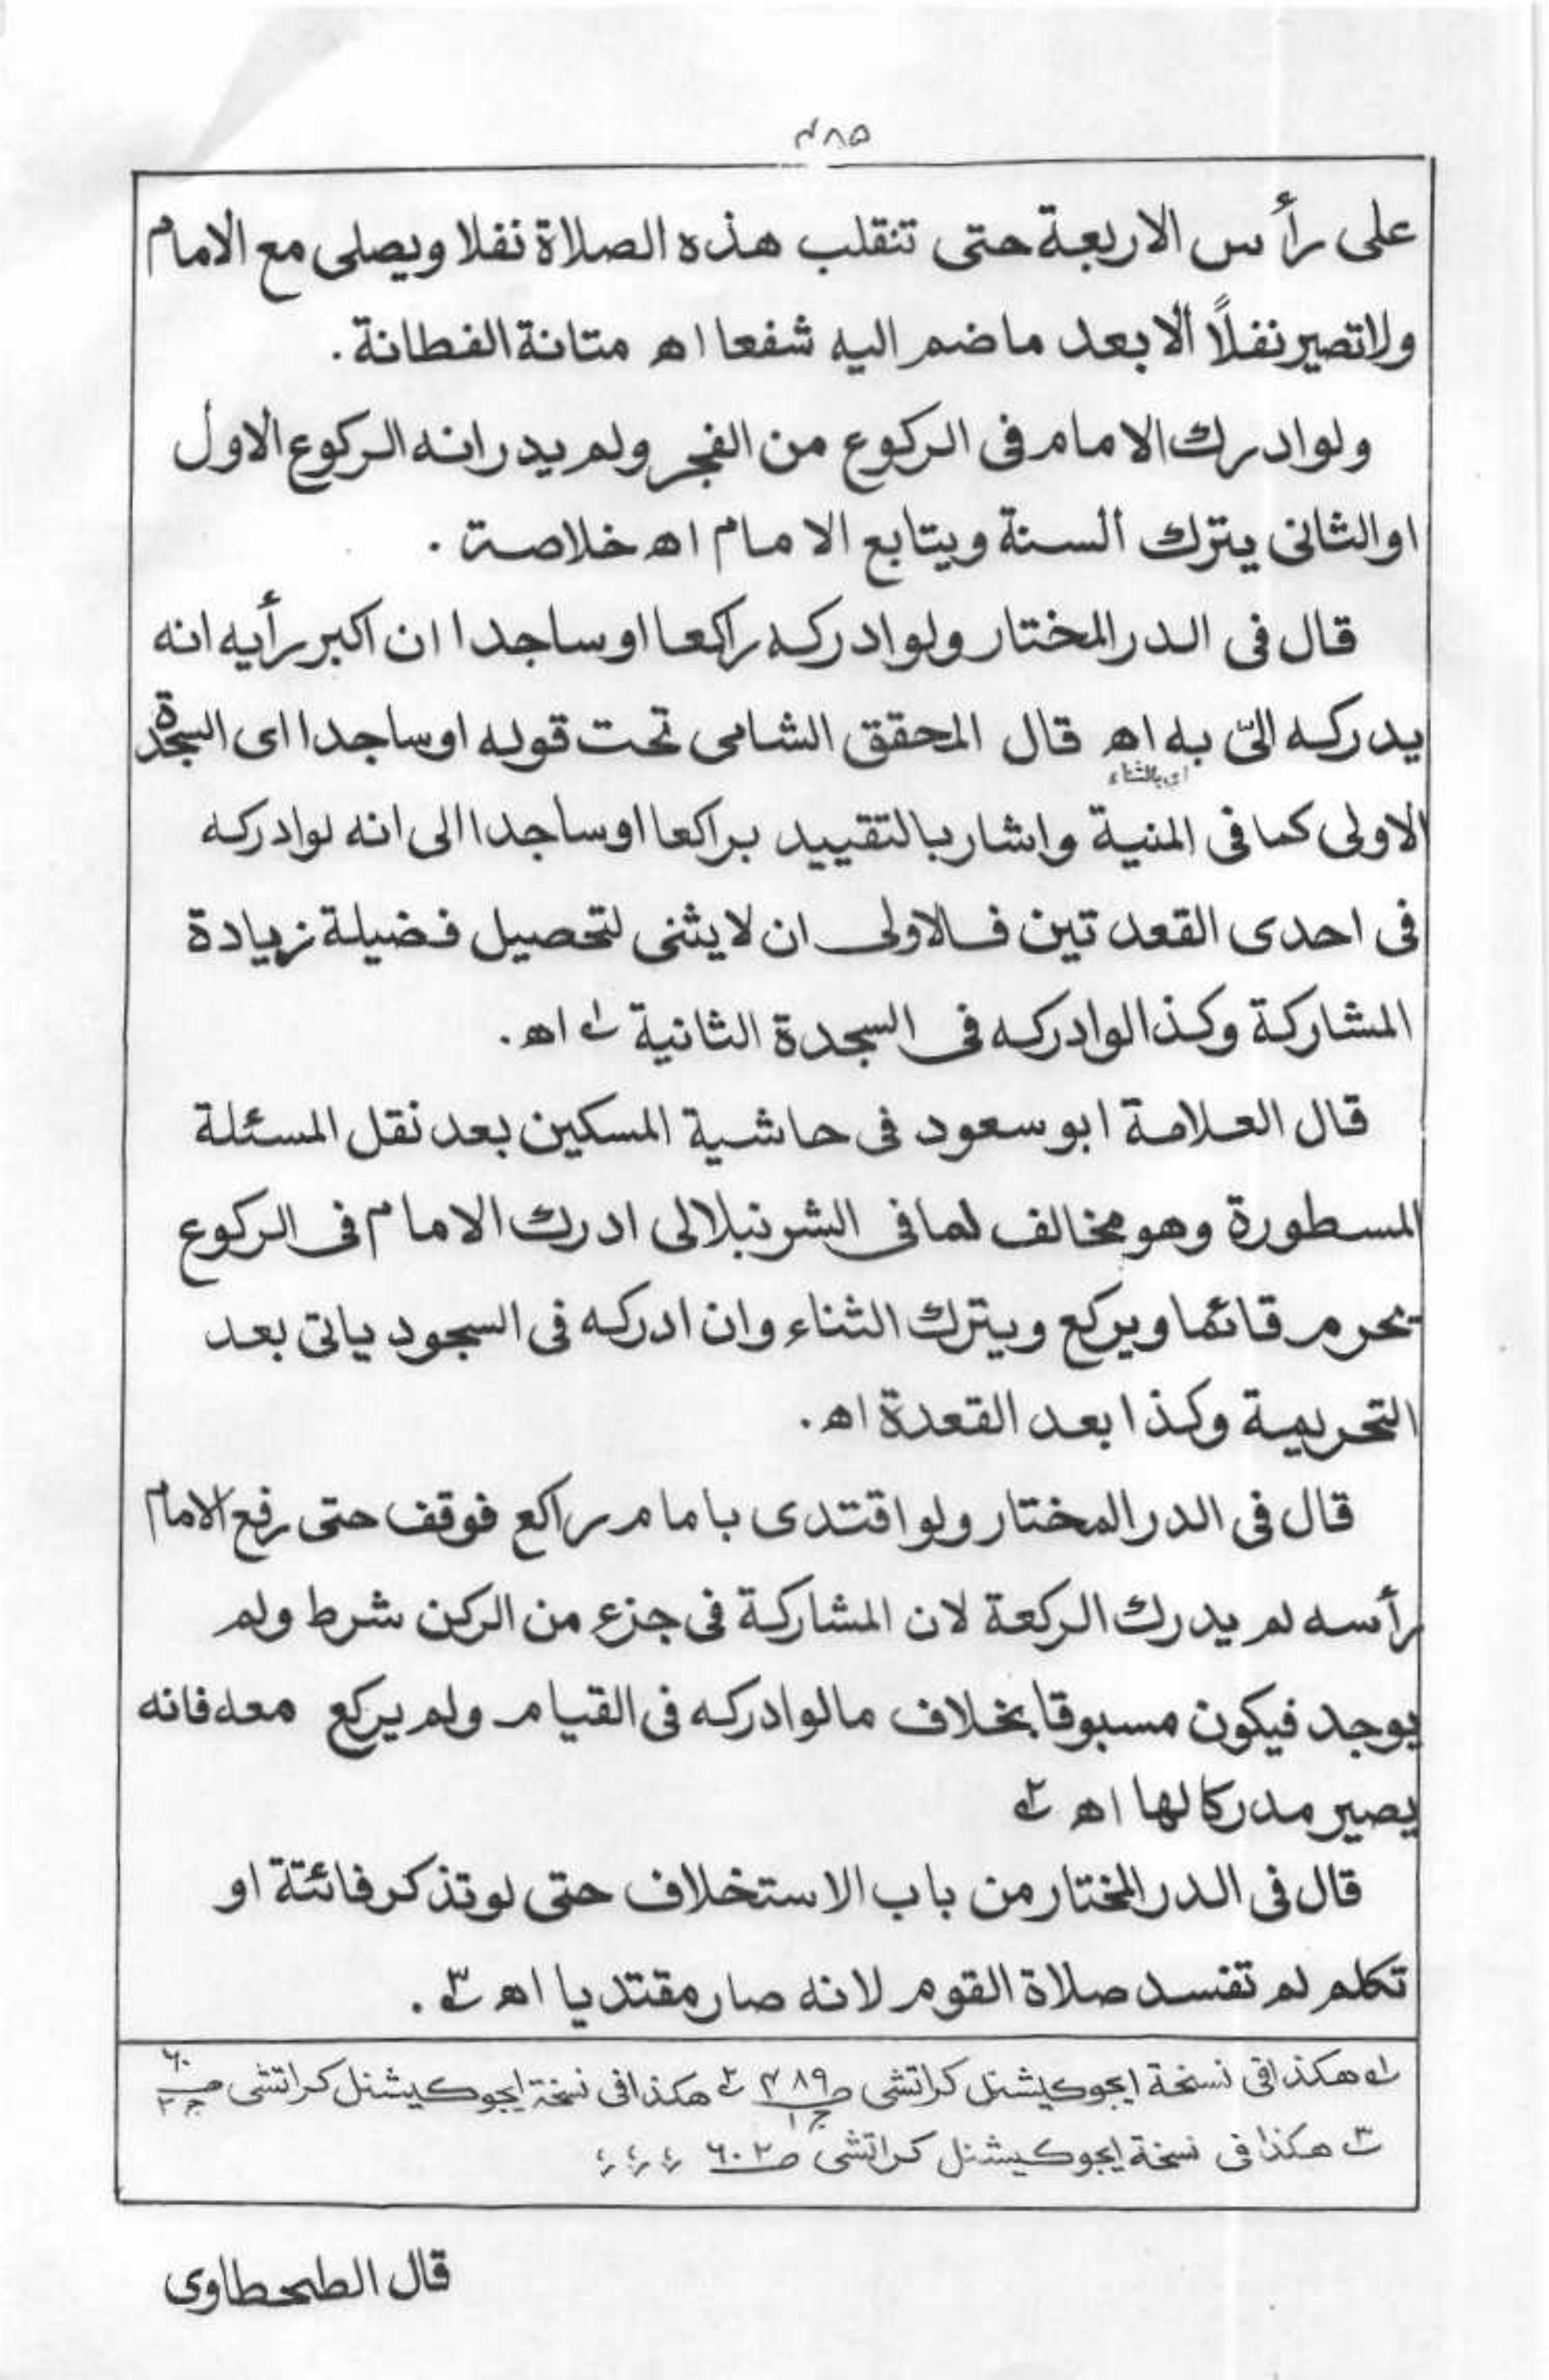 ۴۸۵
على رأس الاربعة حتى تنقلب هذه الصلاة نفلا ويصلى مع الامام
ولا تصير نفلًا الا بعد ما ضم اليه شفعا اه متانة الفطانة .
ولو ادرك الامام فى الركوع من الفجر ولم يدر انه الركوع الاول
او الثانى يترك السنة ويتابع الامام اه خلاصة .
قال فى الدر المختار ولو ادركه راكعا او ساجدا ان اكبر رأيه انه
يدركه اتى به اه قال المحقق الشامى تحت قوله او ساجدا اى السجدة
اى بالثناء
الاولى كما فى المنية واشار بالتقييد براكعا او ساجدا الى انه لو ادركه
فى احدى القعدتين فالاولى ان لا يثنى لتحصيل فضيلة زيادة
المشاركة وكذا لو ادركه فى السجدة الثانية ؎۱ اه .
قال العلامة ابو سعود فى حاشية المسكين بعد نقل المسئلة
المسطورة وهو مخالف لما فى الشرنبلالى ادرك الامام فى الركوع
يحرم قائما ويركع ويترك الثناء وان ادركه فى السجود ياتى بعد
التحريمة وكذا بعد القعدة اه .
قال فى الدر المختار ولو اقتدى بامام راكع فوقف حتى رفع الامام
رأسه لم يدرك الركعة لان المشاركة فى جزء من الركن شرط ولم
يوجد فيكون مسبوقا بخلاف ما لو ادركه فى القيام ولم يركع معه فانه
يصير مدركا لها اه ؎۲
قال فى الدر المختار من باب الاستخلاف حتى لو تذكر فائتة او
تكلم لم تفسد صلاة القوم لانه صار مقتديا اه ؎۳ .
؎۱ هكذا فى نسخة ايجوكيشنل كراتشى ص ۴۸۹ ج ۱ ؎۲ هكذا فى نسخة ايجوكيشنل كراتشى ص ۶۰ ج ۲
؎۳ هكذا فى نسخة ايجوكيشنل كراتشى ص ۶۰۲
قال الطحطاوى